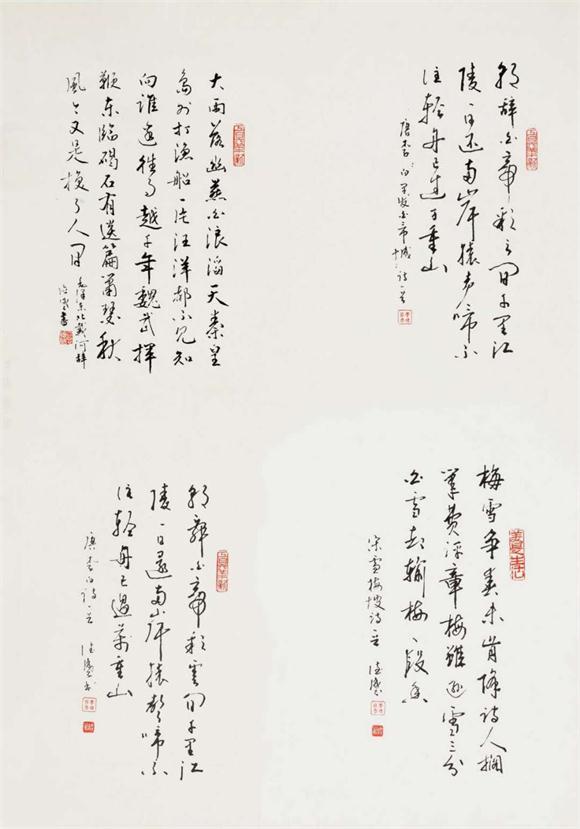 朝辞白帝彩云间千里江
陵一日还两岸猿声啼不
住轻舟已过万重山
唐李白早发白帝城诗一首
大雨落幽燕白浪滔天秦皇
岛外打渔船一片汪洋都不见知
向谁边往事越千年魏武挥
鞭东临碣石有遗篇萧瑟秋
风今又是换了人间
毛泽东北戴河辞
书
梅雪争春未肯降诗人搁
笔费评章梅虽逊雪三分
白雪却输梅一段香
宋卢梅坡诗一首
朝辞白帝彩雲间千里江
陵一日還两岸猿聲啼不
住轻舟已過萬重山
唐李白诗一首
书